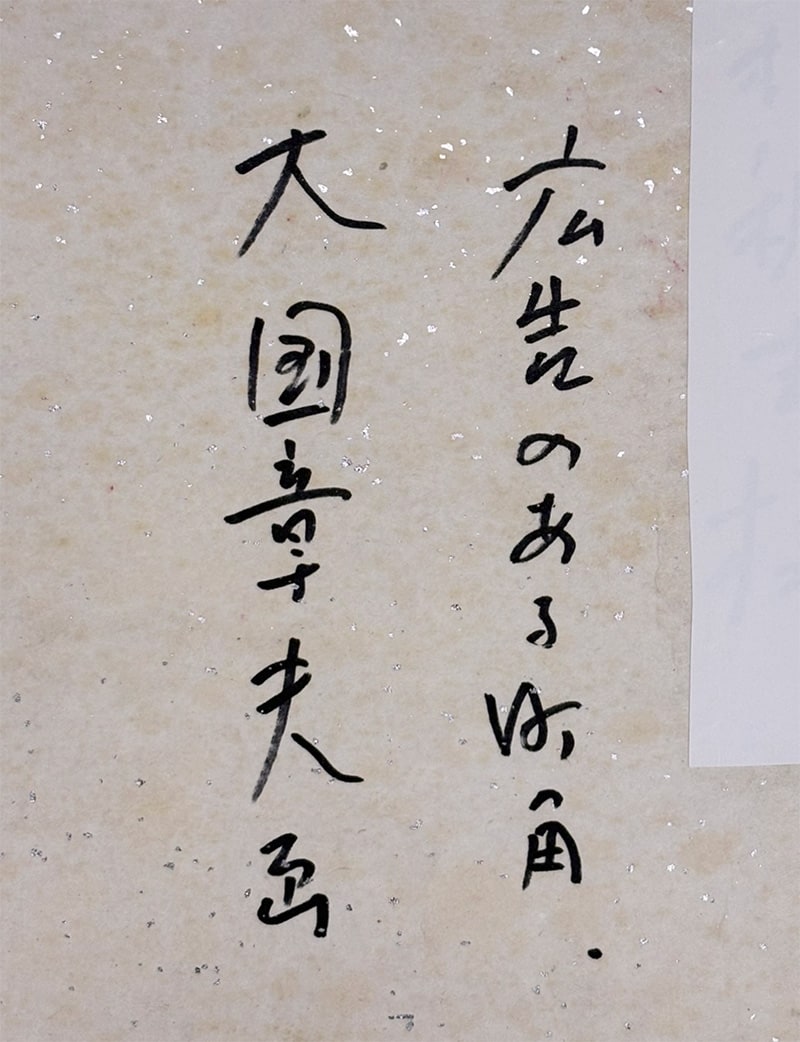 広告のある町角.
大國章夫画